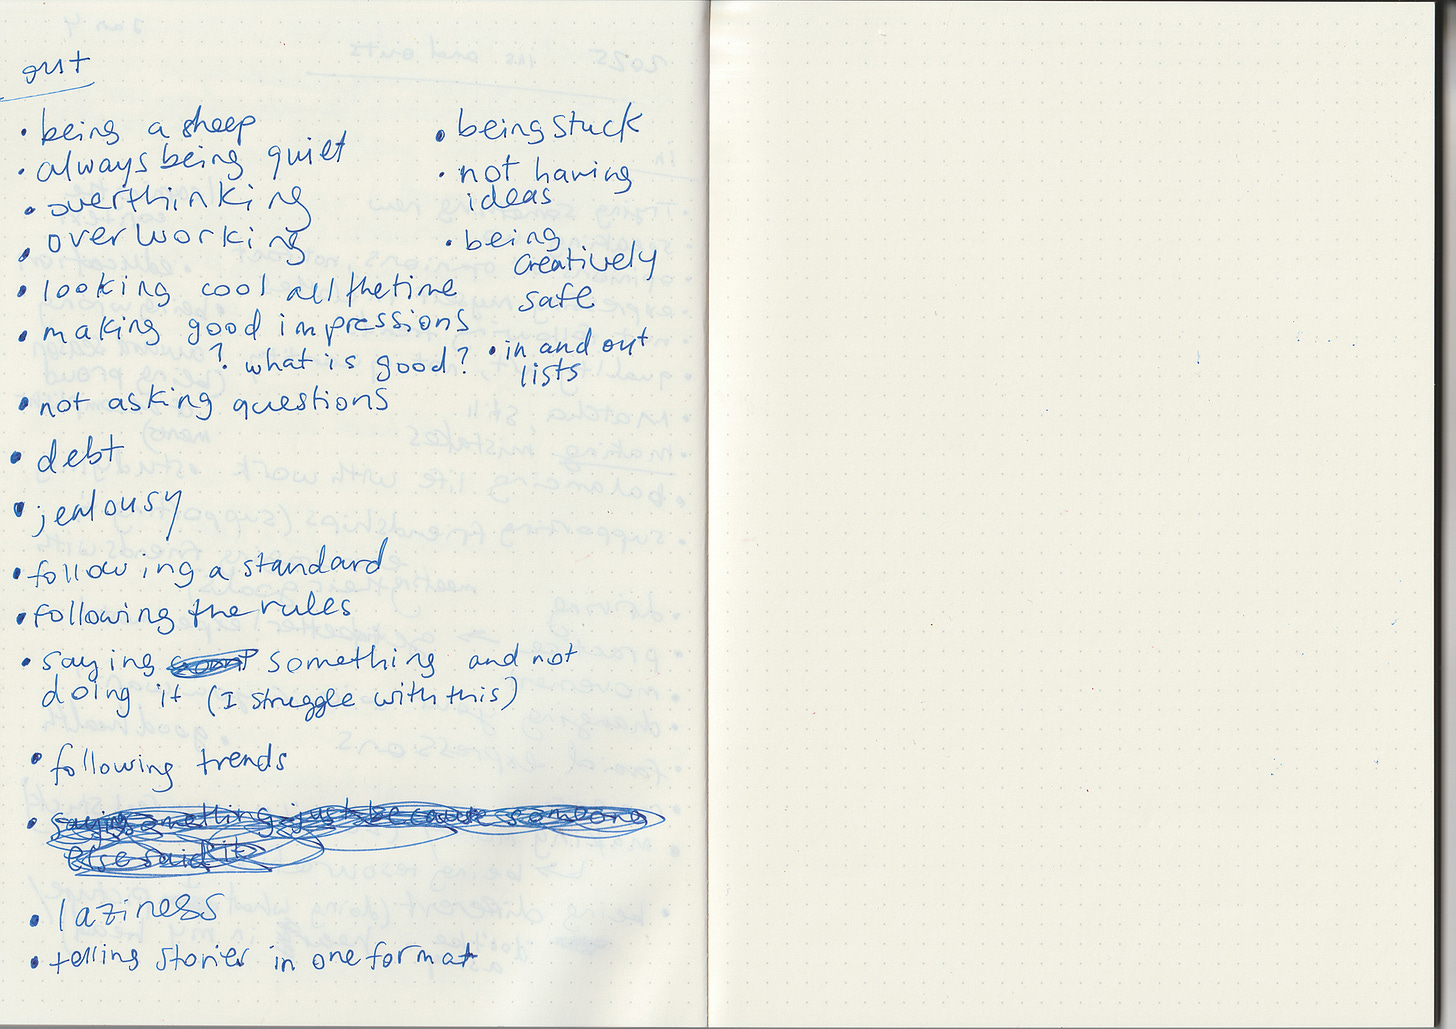 out
• being a sheep
• always being quiet
• overthinking
• overworking
• looking cool all the time
• making good impressions
? what is good?
• not asking questions
• debt
• jealousy
• following a standard
• following the rules
• saying something and not
doing it (I struggle with this)
• following trends
• saying something just because someone
else said it
• laziness
• telling stories in one format
• being stuck
• not having
ideas
• being
creatively
safe
• in and out
lists